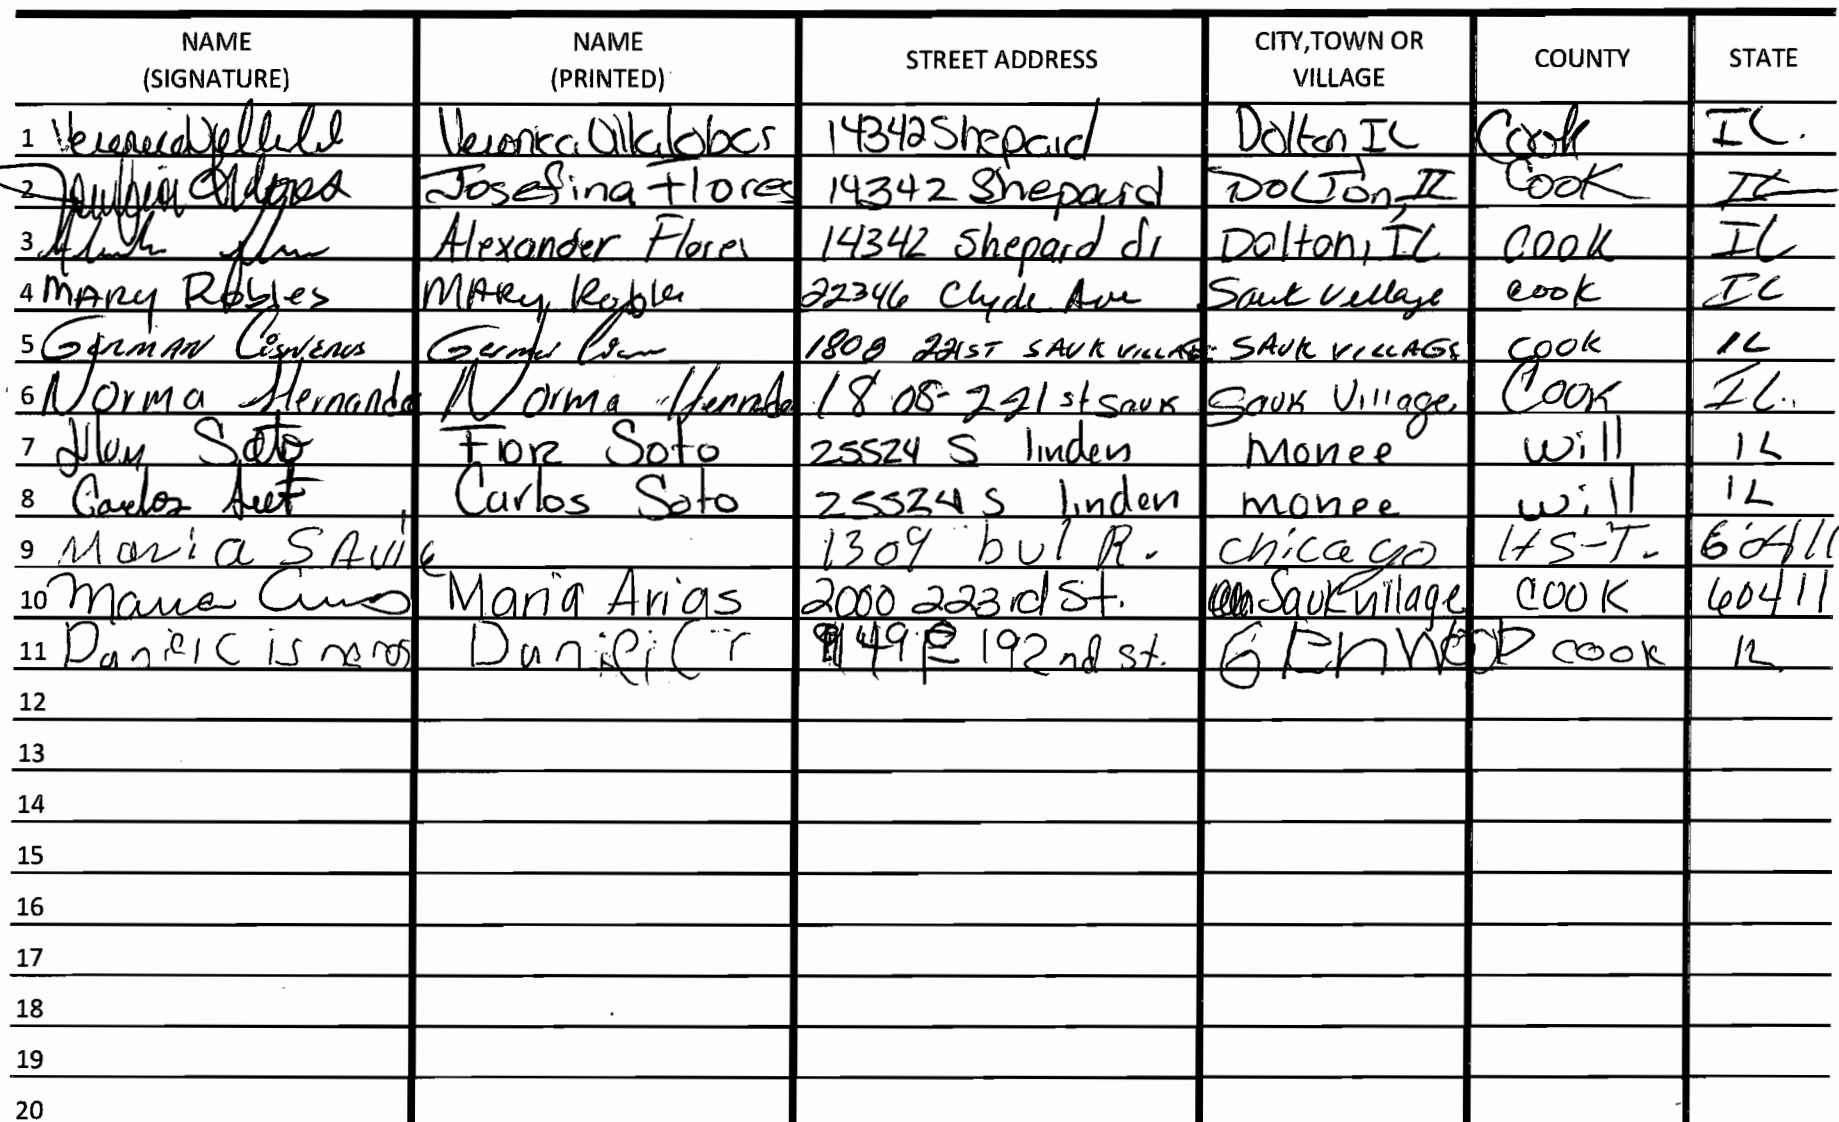 NAME (SIGNATURE) NAME (PRINTED) STREET ADDRESS CITY,TOWN OR VILLAGE COUNTY STATE
1 Veronica Villalobos 14342 Shepard Dolton IL Cook IL.
2 Josefina Flores 14342 Shepard DOLTON, IL COOK IL
3 Alexander Flores 14342 Shepard dr Dolton, IL COOK IL
4 MARY Robles MARY Robles 22346 Clyde Ave Sauk Village cook IL
5 GERMAN Cisneros German 1808 221ST SAUK VILLAGE SAUK VILLAGE COOK IL
6 Norma Hernande Norma 1808-221st Sauk Sauk Village. Cook IL.
7 Soto Flor Soto 25524 S linden Monee Will IL
8 Carlos Carlos Soto 25524 S linden monee will IL
9 Maria 1309 chicago 60411
10 Maria Maria Arias 2000 223rd St. Sauk Village COOK 60411
11 Daniel Cisneros Daniel 192nd st. GLENWOOD COOK IL
12
13
14
15
16
17
18
19
20